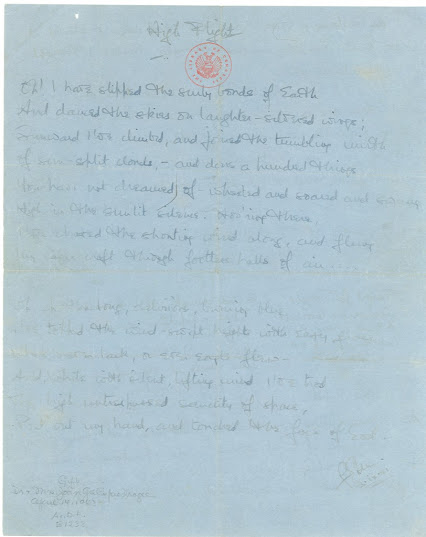 High Flight
Oh! I have slipped the surly bonds of Earth
And danced the skies on laughter-silvered wings;
Sunward I've climbed, and joined the tumbling mirth
of sun-split clouds, - and done a hundred things
You have not dreamed of - wheeled and soared and swung
High in the sunlit silence. Hov'ring there
I've chased the shouting wind along, and flung
My eager craft through footless halls of air....
long, delirious, burning blue
I've topped the wind-swept heights with easy
never lark, or ever eagle flew -
And, while with silent, lifting mind I've trod
The high untrespassed sanctity of space,
Put out my hand, and touched the face of God.
Gift